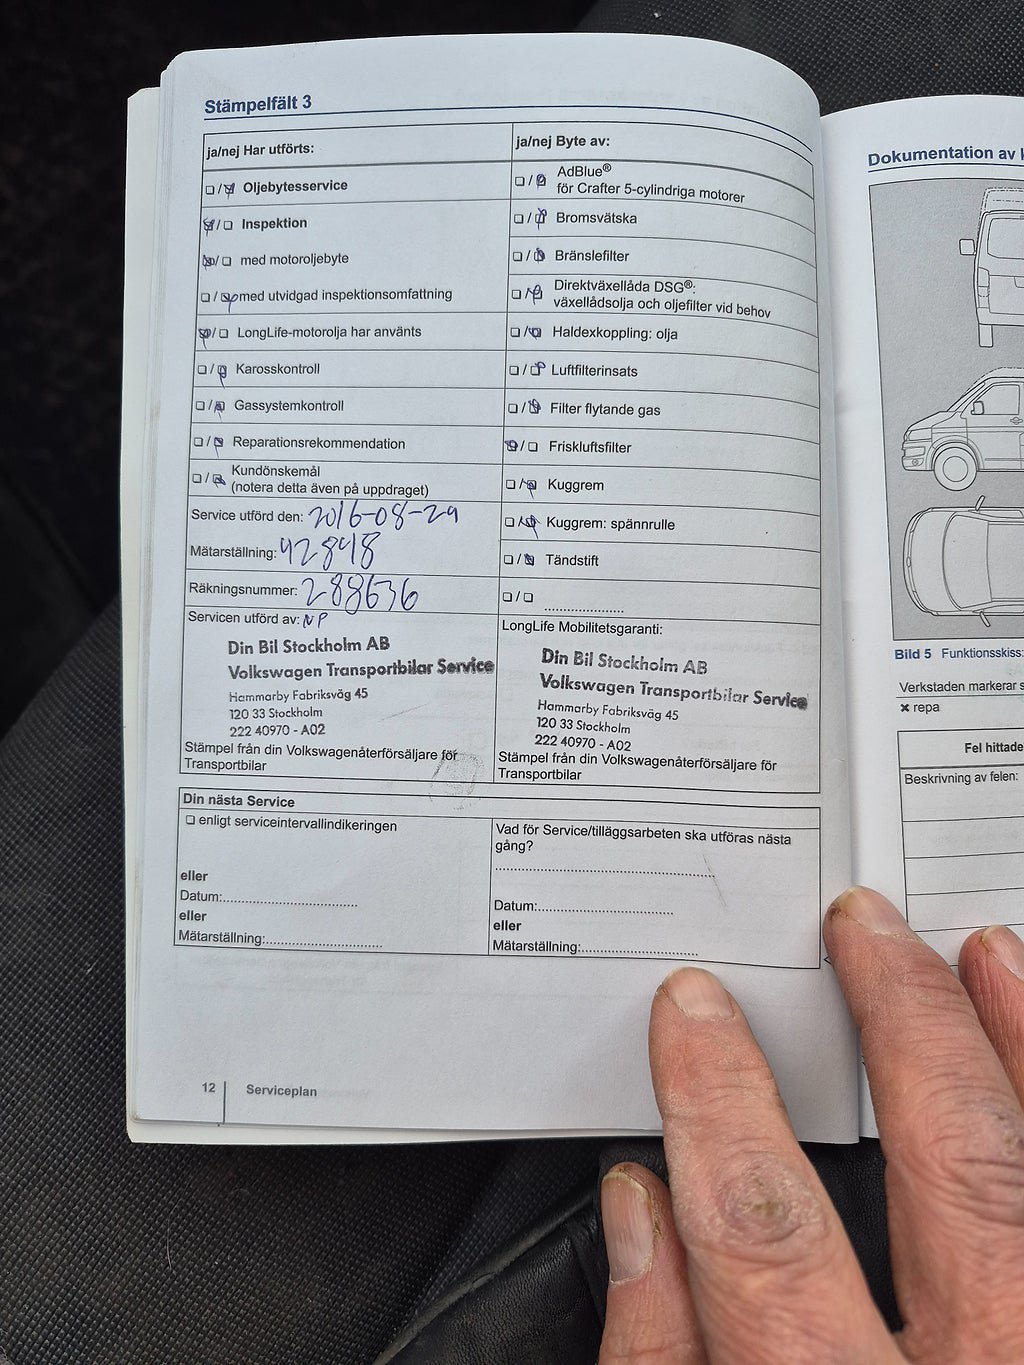 Stämpelfält 3
ja/nej Har utförts:
☐/☒ Oljebytesservice
☒/☐ Inspektion
☒/☐ med motoroljebyte
☐/☒ med utvidgad inspektionsomfattning
☒/☐ LongLife-motorolja har använts
☐/☒ Karosskontroll
☐/☒ Gassystemkontroll
☐/☒ Reparationsrekommendation
☐/☒ Kundönskemål
(notera detta även på uppdraget)
Service utförd den: 2016-08-29
Mätarställning: 42848
Räkningsnummer: 288636
Servicen utförd av: NP
Din Bil Stockholm AB
Volkswagen Transportbilar Service
Hammarby Fabriksväg 45
120 33 Stockholm
222 40970 - A02
Stämpel från din Volkswagenåterförsäljare för
Transportbilar
ja/nej Byte av:
☐/☒ AdBlue®
för Crafter 5-cylindriga motorer
☐/☒ Bromsvätska
☐/☒ Bränslefilter
☐/☒ Direktväxellåda DSG®:
växellådsolja och oljefilter vid behov
☐/☒ Haldexkoppling: olja
☐/☒ Luftfilterinsats
☐/☒ Filter flytande gas
☒/☐ Friskluftsfilter
☐/☒ Kuggrem
☐/☒ Kuggrem: spännrulle
☐/☒ Tändstift
☐/☐ ......................
LongLife Mobilitetsgaranti:
Din Bil Stockholm AB
Volkswagen Transportbilar Service
Hammarby Fabriksväg 45
120 33 Stockholm
222 40970 - A02
Stämpel från din Volkswagenåterförsäljare för
Transportbilar
Din nästa Service
☐ enligt serviceintervallindikeringen
eller
Datum:..............................
eller
Mätarställning:..........................
Vad för Service/tilläggsarbeten ska utföras nästa
gång?
..................................................
Datum:..............................
eller
Mätarställning:..........................
12 Serviceplan
Dokumentation av
Bild 5 Funktionsskiss:
Verkstaden markerar
✖ repa
Fel hittade
Beskrivning av felen: